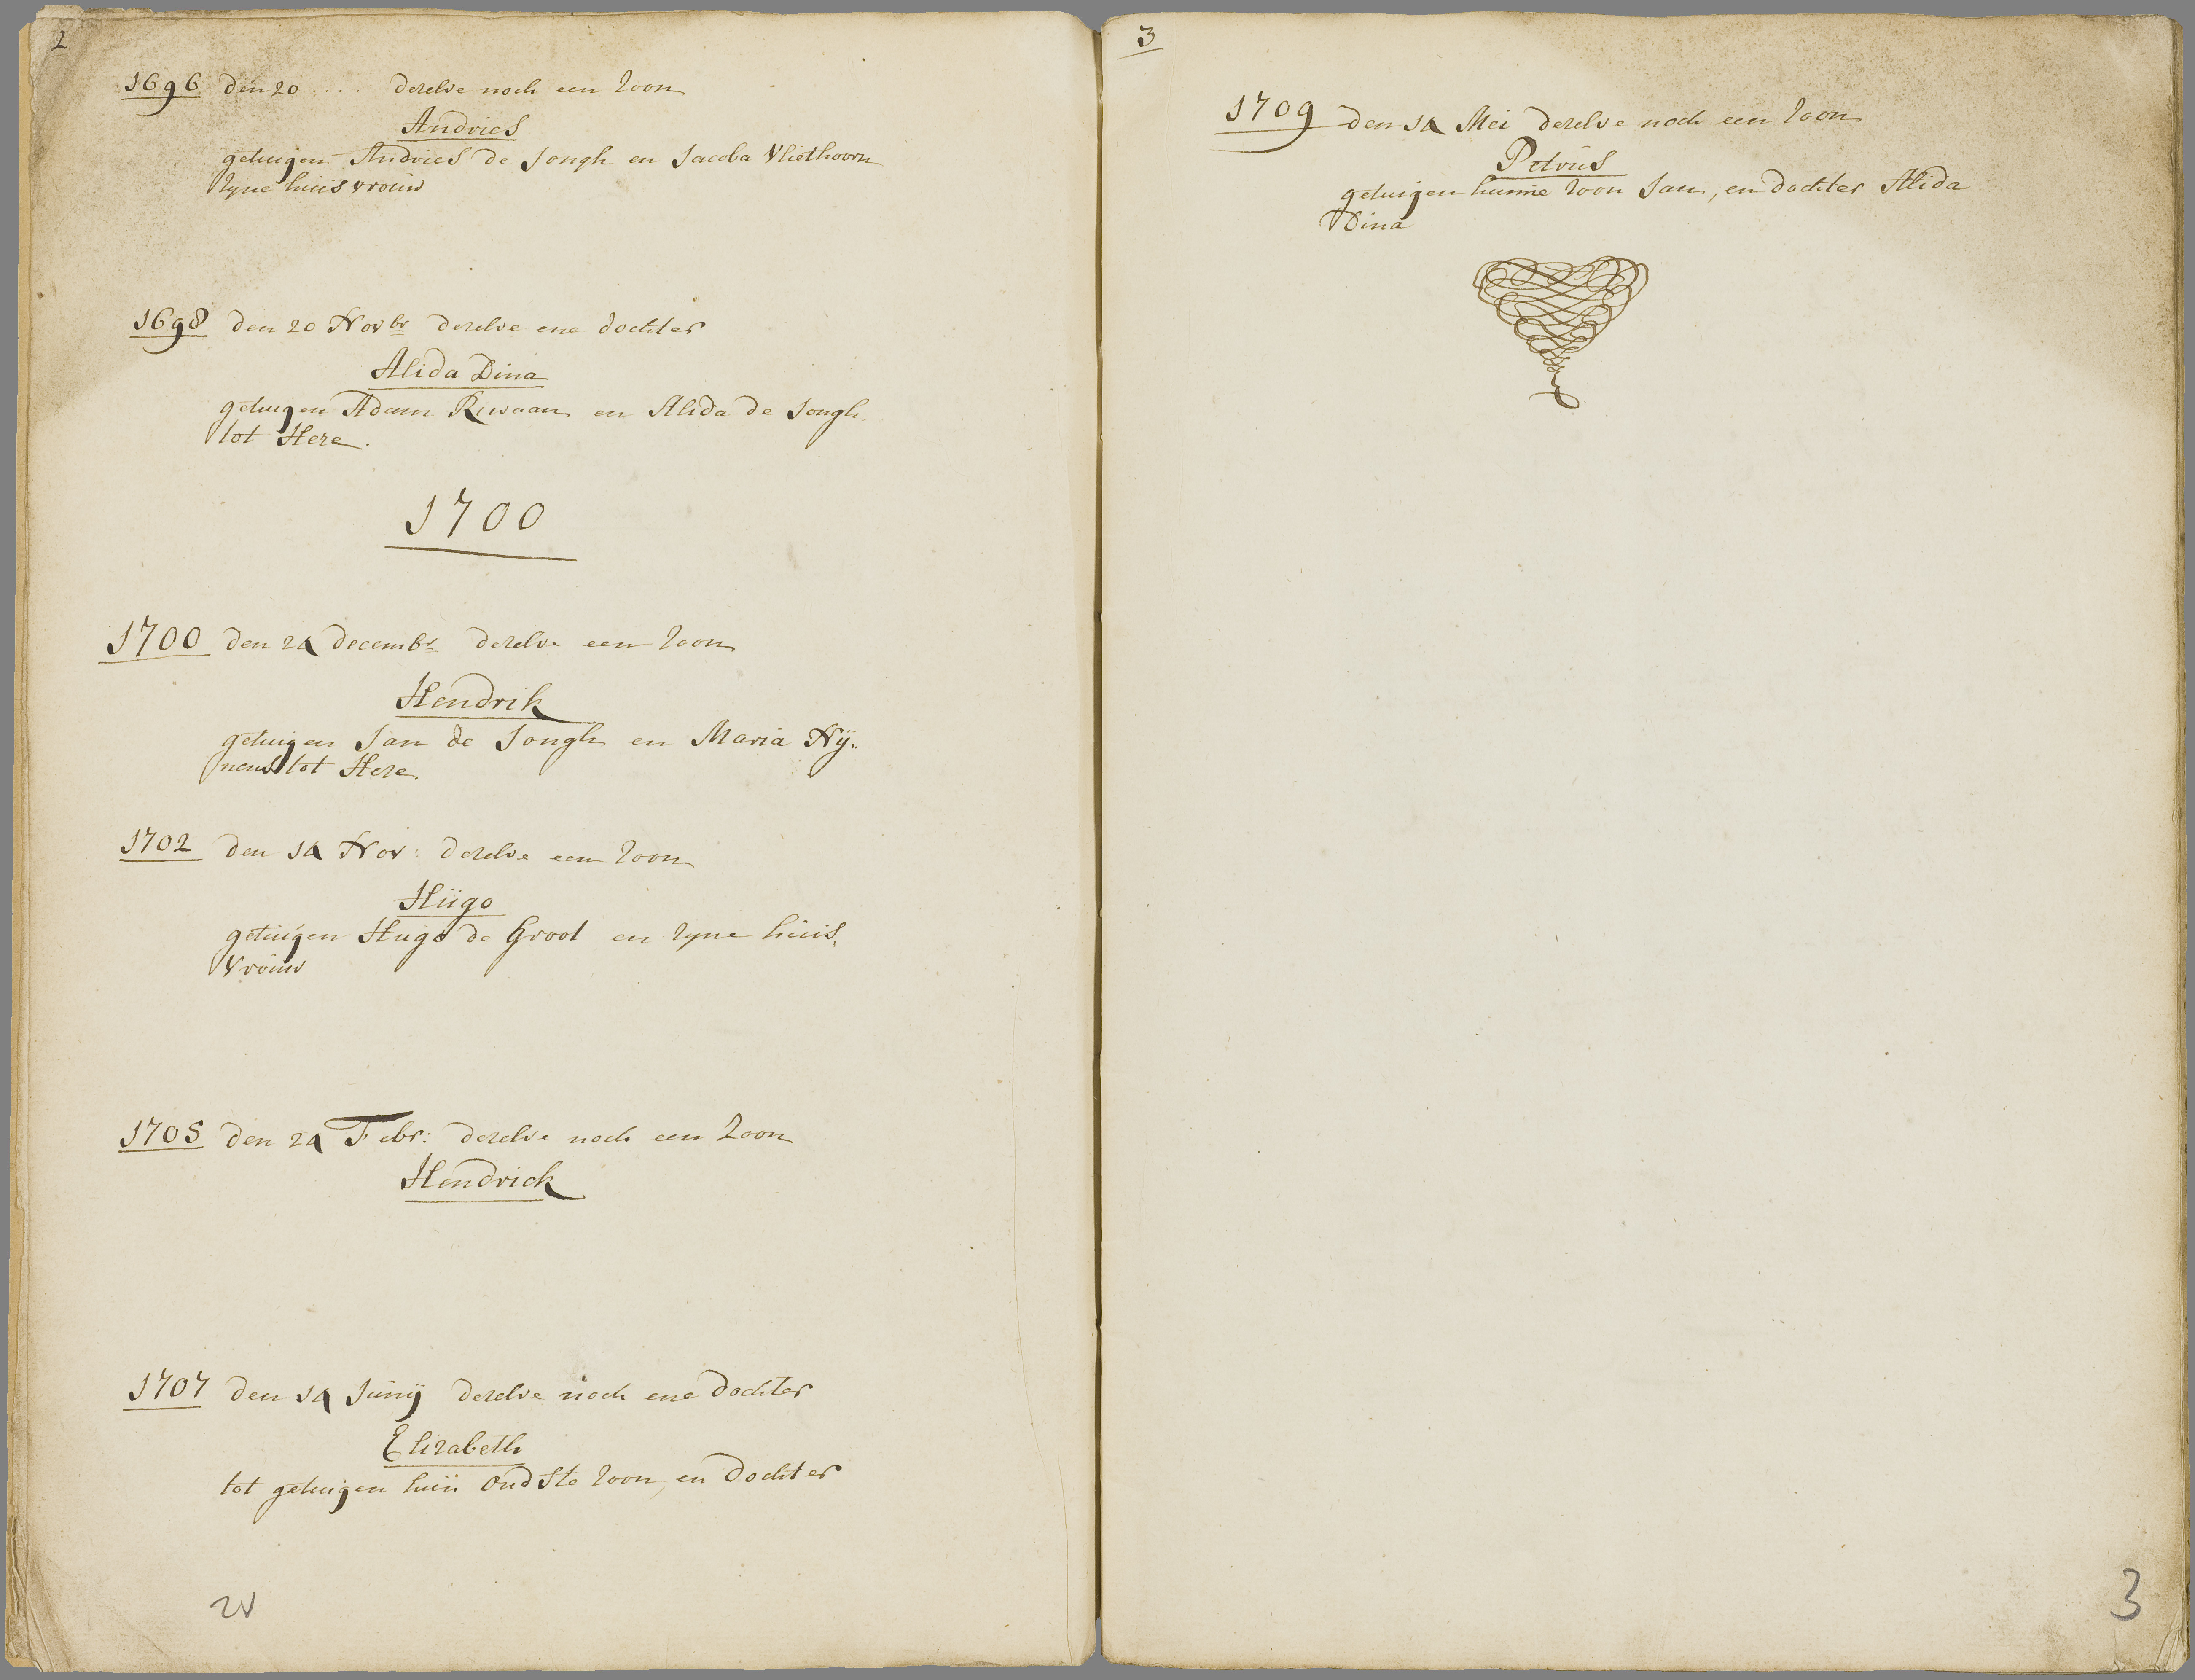 2
1696 den 20 .... dezelve noch een zoon
Andries
getuigen Andries de Jongh en Jacoba Vliethoorn
zyne huisvrouw
1698 den 20 Novbr dezelve ene dochter
Alida Dina
getuigen Adam Ruwaan en Alida de Jongh
tot Heze.
1700
1700 den 24 decembr dezelve een zoon
Hendrik
getuigen Jan de Jongh en Maria Ny„
nens tot Heze.
1702 den 14 Nov: dezelve een zoon
Hugo
getuigen Hugo de Groot en zyne huis„
vrouw
1705 den 24 Febr: dezelve noch een Zoon
Hendrick
1707 den 14 Junij dezelve noch ene dochter
Elizabeth
tot getuigen hun oudste zoon, en dochter
2v
3
1709 den 14 Mei dezelve noch een zoon
Petrus
getuigen hunne zoon Jan, en dochter Alida
Dina
3